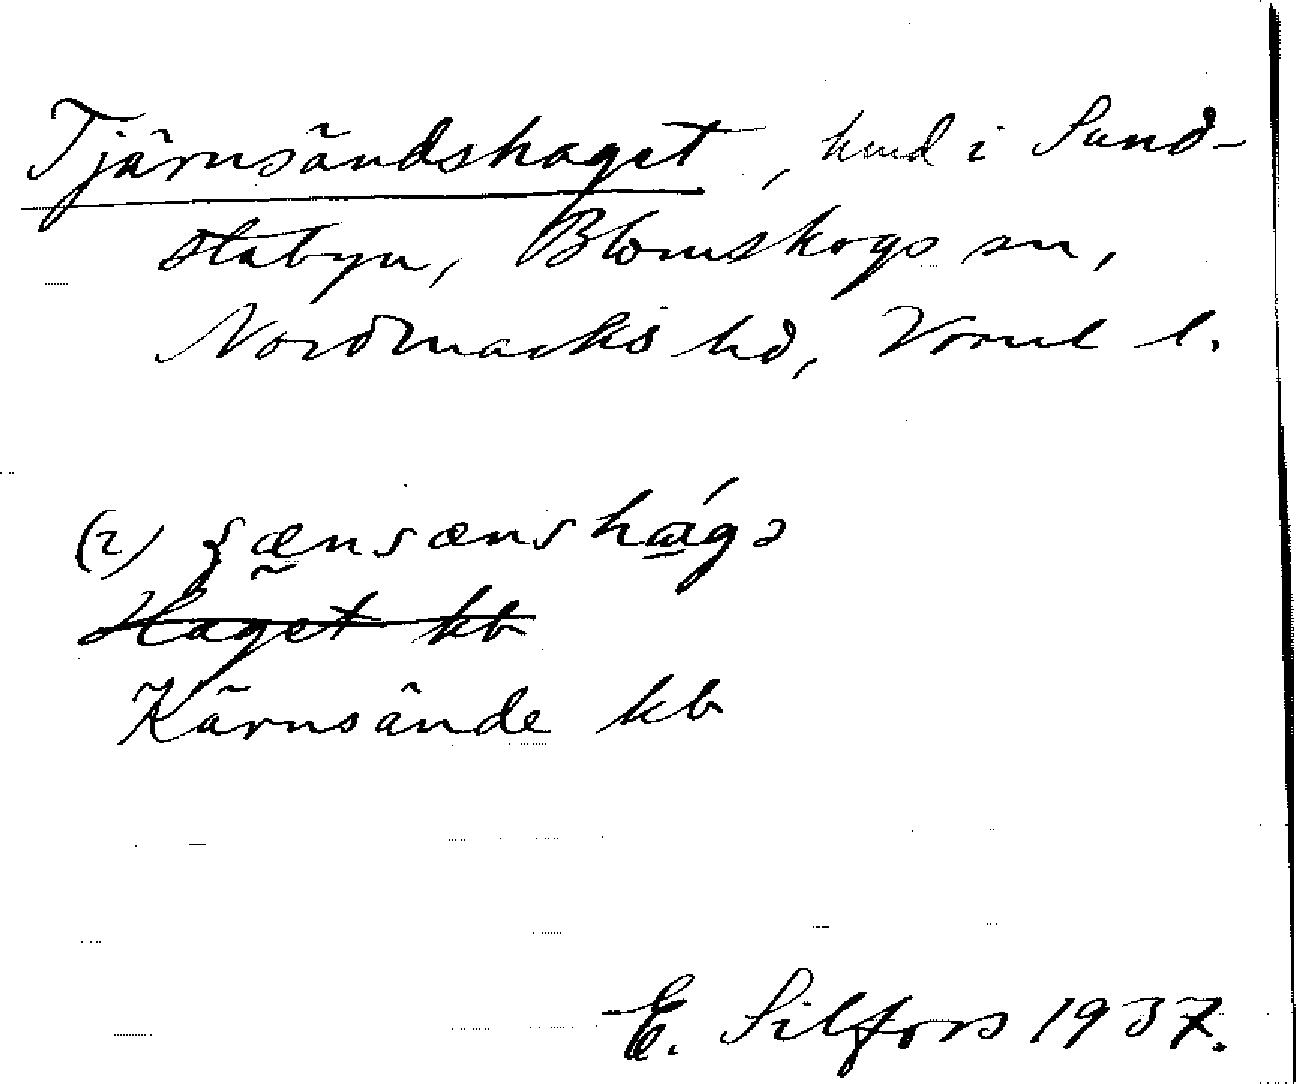 Tjärnsändshaget, hmd i Sund-
stabyn, Blomskogs sn,
Nordmarks hd, Vrml l.
(2) ʂænsænshág
Haget kb
Kärnsände kb
E. Silfors 1937.